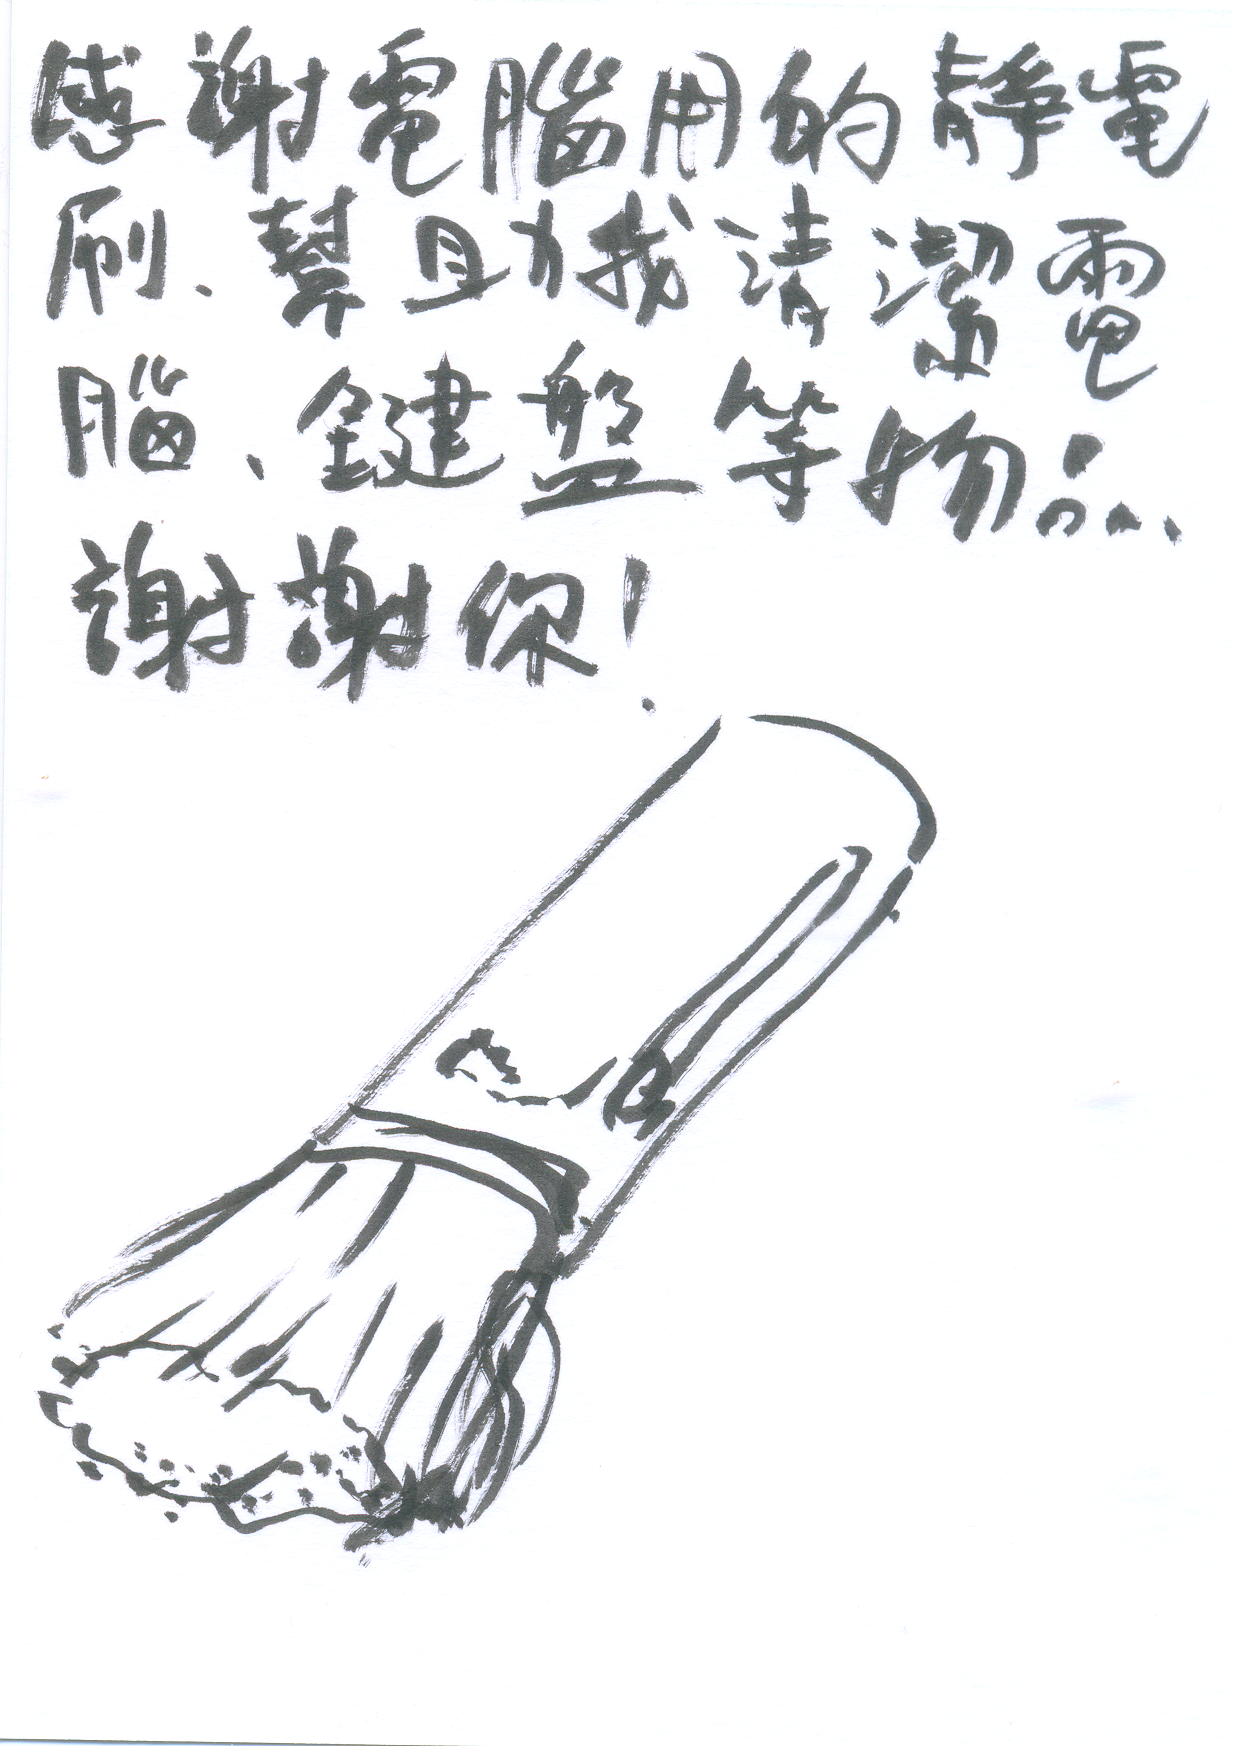 感謝電腦用的靜電
刷、幫助我清潔電
腦、鍵盤等物品、
謝謝你!